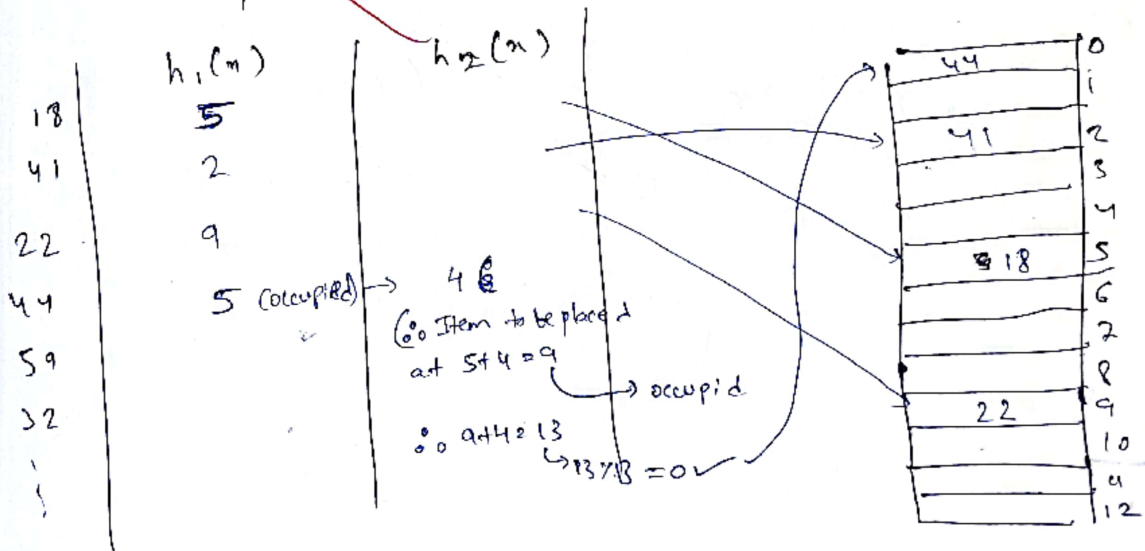 h₁(x) h₂(x)
18 5
41 2
22 9
44 5 (occupied) → 4
(∴ Item to be placed
at 5+4=9
→ occupid
∴ 9+4=13
↳ 13%13 = 0 ✓
59
32
44 0
1
41 2
3
4
18 5
6
7
8
22 9
10
11
12